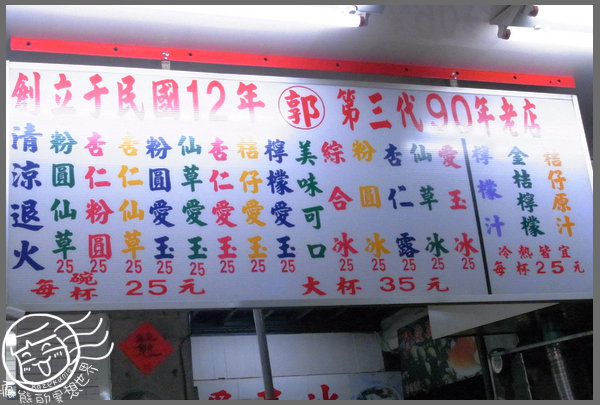 創立于民國12年 郭 第三代90年老店
清涼退火
粉圓仙草 25
杏仁粉圓 25
杏仁仙草 25
粉圓愛玉 25
仙草愛玉 25
杏仁愛玉 25
桔仔愛玉 25
檸檬愛玉 25
美味可口
綜合冰 25
粉圓冰 25
杏仁露 25
仙草冰 25
愛玉冰 25
檸檬汁
金桔檸檬
桔仔原汁
冷熱皆宜
每杯25元
每碗杯 25元
大杯 35元
瘋熊的異想世界